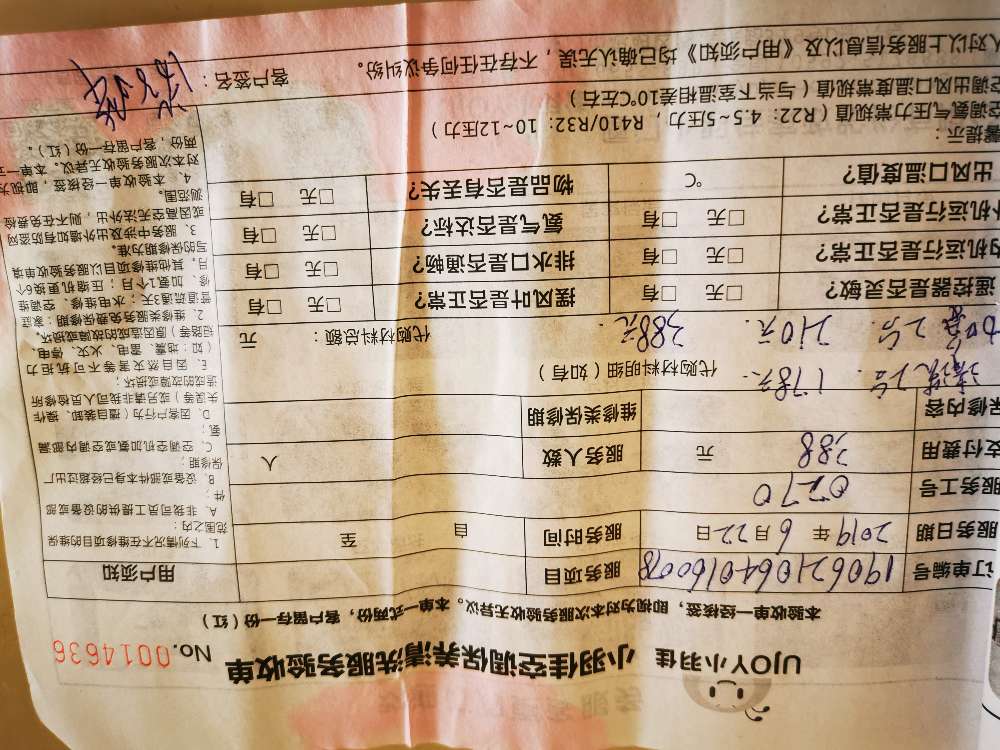 UJOY小羽佳 小羽佳空调保养清洗服务验收单 No. 0014636
本验收单一经核签，即视为对本次服务验收无异议。本单一式两份，客户留存一份（红）
订单编号 1906210640160078 服务项目
服务日期 2019 年 6 月 22 日 服务时间 自 至
服务工号 0270
支付费用 388 元 服务人数 人
保修内容 维修类保修期
代购材料明细（如有）
清洗2台. 178元.
加氨 2台. 210元 388元. 代购材料总额： 元
遥控器是否灵敏？ □无 □有 摆风叶是否正常？ □无 □有
内机运行是否正常？ □无 □有 排水口是否通畅？ □无 □有
外机运行是否正常？ □无 □有 氨气是否达标？ □无 □有
出风口温度值？ ℃ 物品是否有丢失？ □无 □有
警提示：
空调氨气压力常规值（R22：4.5~5压力，R410/R32：10~12压力）
空调出风口温度常规值（与当下室温相差10℃左右）
人对以上服务信息以及《用户须知》均已确认无误，不存在任何争议纠纷。 客户签名：
用户须知
1、下列情况不在维修项目的维保
范围之内：
A、非我司员工提供的设备或服
件；
B、设备或部件本身已经超过出厂
保修期；
C、空调空机加氨或空调内部漏
氨；
D、因客户行为（擅自装卸、操作
失误等）或另请非我司人员检修所
造成的故障或损坏；
E、因自然灾害等不可抗拒力
（如：地震、雷电、火灾、停电、
短路等）原因造成的故障或损坏。
2、维修类服务免费保修期：家庭
管道疏通3天；水电维修、空调维
修、加氨1个月；压缩机更换6个
月。其他维修项目以服务验收单填
写的保修期为准。
3、服务中涉及出外墙如有防盗网
或因高空无法外出，则不在免费检
测范围。
4、本验收单一经核签，即视为
对本次服务验收无异议。本单一式
两份，客户留存一份（红）。